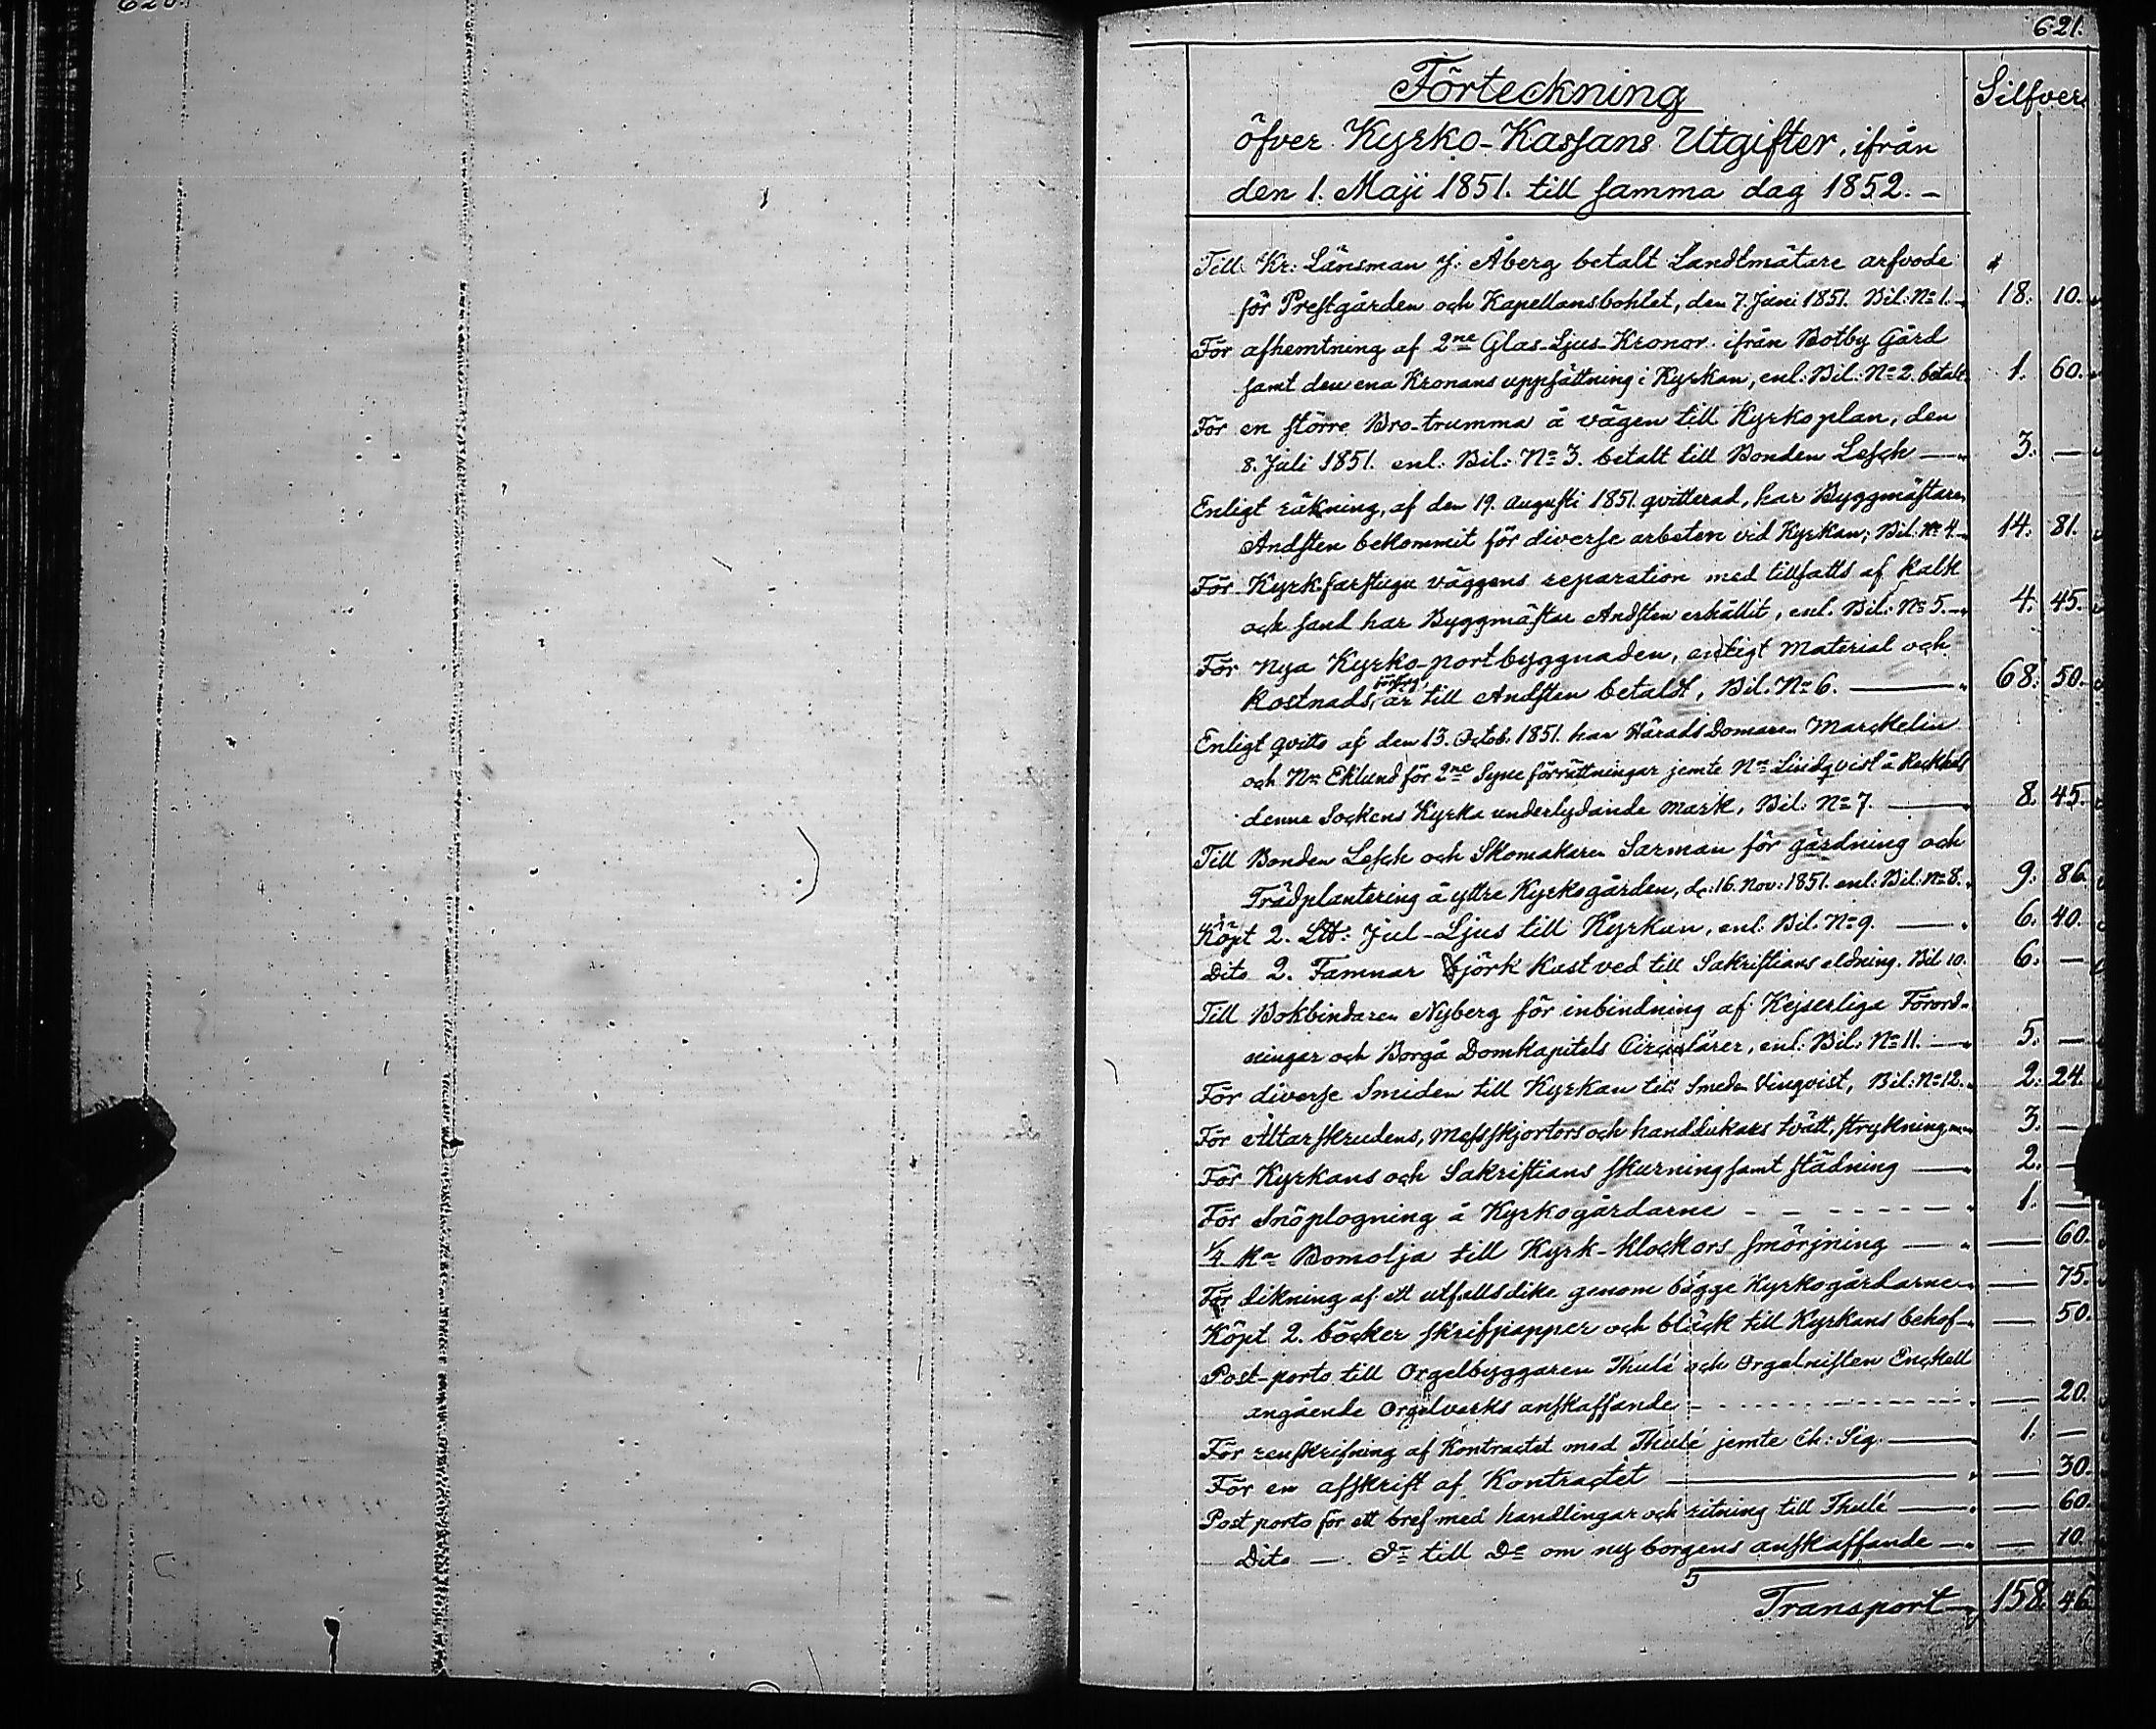 620.
621.
Förteckning
Silfver
öfver Kyrko-Kassans Utgifter, ifrån
den 1. Maji 1851. till samma dag 1852. –
Till Kr: Länsman J: Åberg betalt Landtmätare arfvode
för Prestgården och Kapellansbohlet, den 7. Juni 1851. Bil: No 1. 18. 10.
För afhemtning af 2ne Glas-Ljus-Kronor ifrån Botby Gård
samt den ena Kronans uppsättning i Kyrkan, enl: Bil: No 2. betalt 1. 60.
För en större Bro-trumma å vägen till Kyrkoplan, den
8. Juli 1851. enl: Bil: No 3. betalt till Bonden Lesch — 3. —
Enligt räkning, af den 19. Augusti 1851. qvitterad, har Byggmästaren
Andsten bekommit för diverse arbeten vid Kyrkan; Bil: No 4. 14. 81.
För Kyrk farstugu väggens reparation med tillsatts af kalk
och sand har Byggmästar Andsten erhållit, enl. Bil: No 5. 4. 45.
För Nya Kyrko-portbyggnaden, enligt Material och
Kostnads, är till Andsten betaldt, Bil. No 6. — 68. 50.
Enligt qvitto af den 13. Octob. 1851. har HäradsDomaren Marckelin
och Nn Eklund för 2ne Syneförrättningar jemte Nn Lindqvist å
denne Sockens Kyrka underlydande mark, Bil: No 7. — 8. 45.
Till Bonden Lesch och Skomakaren Sarman för gärdning och
Trädplantering å yttre Kyrkogården, d: 16. Nov: 1851. enl: Bil: No 8. 9. 86.
Köpt 2. Ltt: Jul-Ljus till Kyrkan, enl: Bil. No 9. — 6. 40.
Dito 2. Famnar björk Kastved till Sakristians eldning. Bil 10. 6. —
Till Bokbindaren Nyberg för inbindning af Kejserliga Förord-
ningar och Borgå Domkapitels Circulärer, enl: Bil: No 11. — 5. —
För diverse Smiden till Kyrkan till Smeden Vinqvist, Bil: No 12. 2. 24.
För Altarskrudens, Messskjortors och handdukars tvätt, strykning 3. —
För Kyrkans och Sakristians skurning samt städning — 2. —
För Snöplogning å Kyrkogårdarne - - - - - - 1. —
1/4 Kn Bomolja till Kyrk-klockors smörjning — — 60.
För dikning af ett utfallsdike genom bägge Kyrkogårdarne — 75.
Köpt 2. böcker skrifpapper och bläck till Kyrkans behof — 50.
Post-porto till Orgelbyggaren Thulé och Orgelnisten Enckell
angående Orgelverks anskaffande - - - - - - — 20.
För renskrifning af Kontractet med Thulé jemte Ch: Sig. — 1. —
För en afskrift af Kontractet — — 30.
Post porto för ett bref med handlingar och ritning till Thulé — — 60.
Dito — Do till Do om ny borgens anskaffande — — 10.
Transport 158. 46